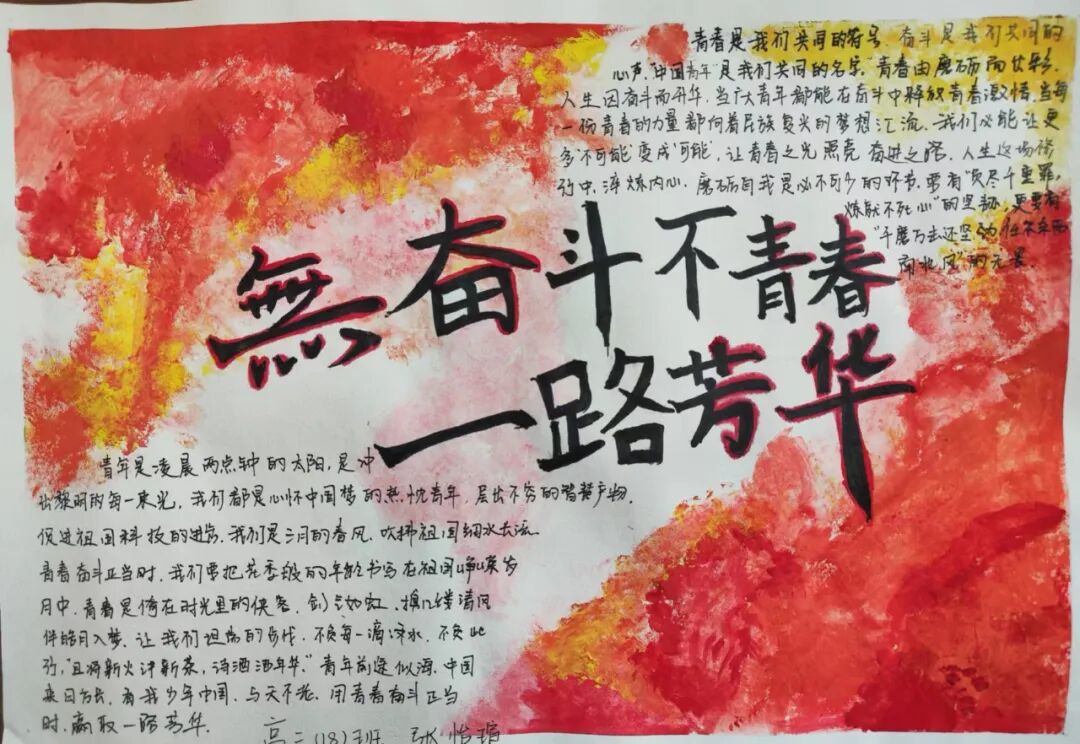 青春是我们共同的符号，奋斗是我们共同的
心声，"中国青年"是我们共同的名字。青春由磨砺而出彩，
人生因奋斗而升华，当广大青年都能在奋斗中释放青春激情，当每
一份青春的力量都向着民族复兴的梦想汇流，我们必能让更
多'不可能'变成'可能'，让青春之光照亮奋进之路。人生这场修
行中，淬炼内心、磨砺自我是必不可少的环节，要有"受尽千重罪，
炼就不死心"的坚韧，更要有
"千磨万击还坚劲，任尔东西
南北风"的无畏。
無奋斗不青春
一路芳华
青年是凌晨两点钟的太阳，是冲
出黎明的每一束光，我们都是心怀中国梦的热忱青年，层出不穷的智慧产物，
促进祖国科技的进步，我们是三月的春风，吹拂祖国细水长流
青春奋斗正当时，我们要把花季般的年龄书写在祖国峥嵘岁
月中，青春是倚在时光里的侠客，剑气如虹，携几缕清风
伴皓月入梦，让我们坦荡的步伐，不负每一滴汗水，不负此
行，"且将新火评新茶，诗酒酒年华。"青年前途似海，中国
来日方长，看我少年中国，与天不老，用青春奋斗正当
时，赢取一路芳华。
高二(18)班 张怡瑄